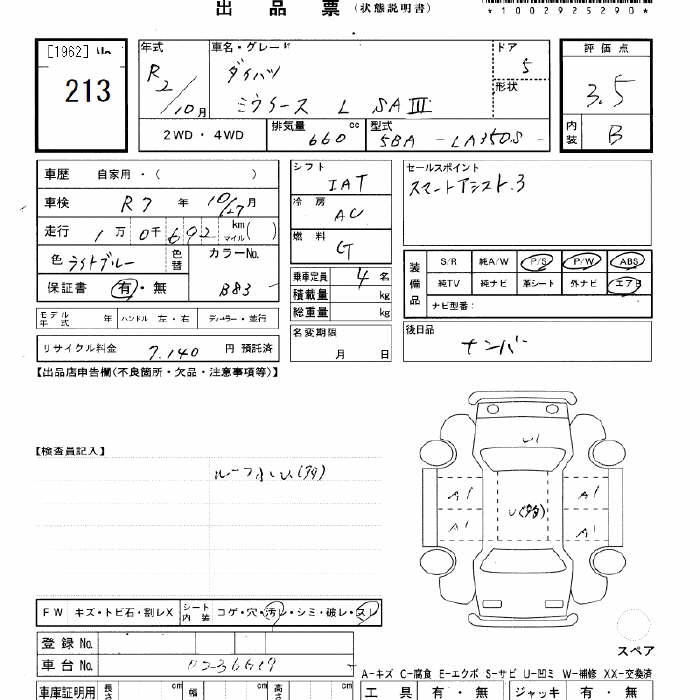 出 品 票 (状態説明書)
*1002925290*
[1962]
213
年式
R2/10月
車名・グレード
ダイハツ
ミライース L SAⅢ
ドア
5
形状
評価点
3.5
内装
B
2WD・4WD
排気量
660 cc
型式
5BA - LA350S -
車歴 自家用・( )
車検 R7 年 10/27月
走行 1万0千692 km マイル( )
色 ライトブルー
色替
カラーNo.
B83
保証書 有・無
シフト
IAT
冷房
AC
燃料
G
乗車定員 4 名
積載量 kg
総重量 kg
セールスポイント
スマートアシスト3
装備品
S/R 純A/W P/S P/W ABS
純TV 純ナビ 革シート 外ナビ エアB
ナビ型番:
モデル年式 年 ハンドル 左・右 ディーラー・並行
リサイクル料金 7.140 円 預託済
名変期限
月 日
後日品
ナンバー
【出品店申告欄(不良箇所・欠品・注意事項等)】
【検査員記入】
U1
A1 A1
A1 A1
U(多)
FW キズ・トビ石・割レX
シート内装 コゲ・穴・汚レ・シミ・破レ・スレ
登録 No.
車台 No.
スペア
A-キズ C-腐食 E-エクボ S-サビ U-凹ミ W-補修 XX-交換済
車庫証明用 長さ cm 幅 cm 高さ cm
工 具 有・無 ジャッキ 有・無